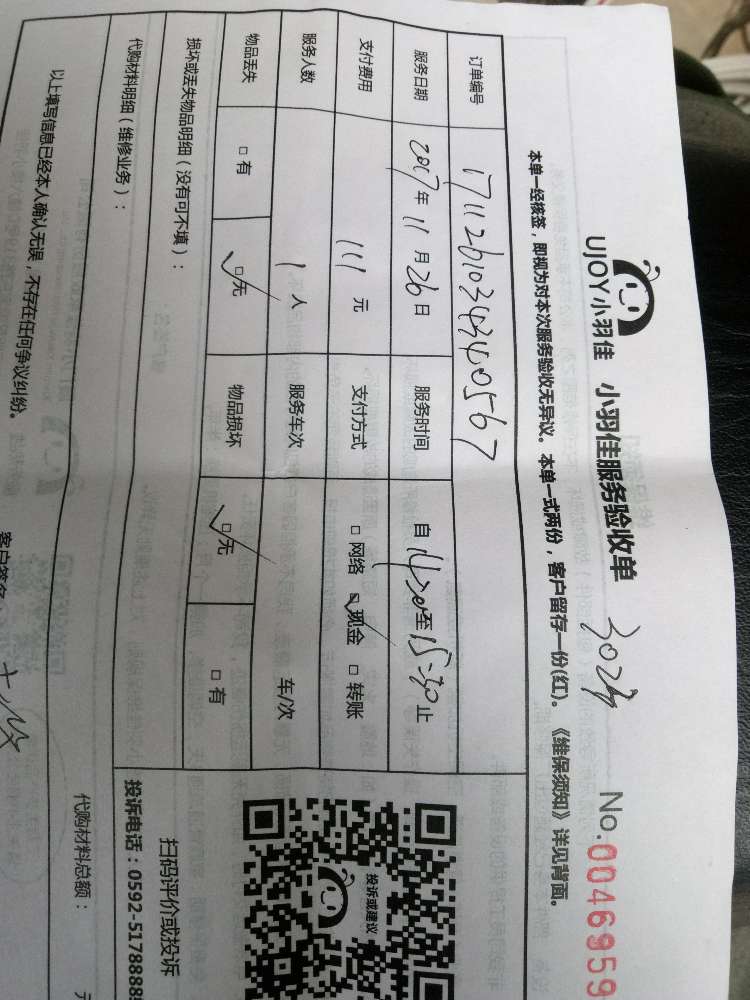 UJOY小羽佳 小羽佳服务验收单 No.0046959
本单一经核签，即视为对本次服务验收无异议。本单一式两份，客户留存一份(红)。《维保须知》详见背面。
订单编号 1711261034340567
服务日期 2017年11月26日 服务时间 自14:20至15:30止
支付费用 111元 支付方式 □网络 ☑现金 □转账
服务人数 1人 服务车次 车/次
物品丢失 □有 ☑无 物品损坏 ☑无 □有
损坏或丢失物品明细（没有可不填）：
代购材料明细（维修业务）：
代购材料总额： 元
以上填写信息已经本人确认无误，不存在任何争议纠纷。
客户签名
投诉或建议
扫码评价或投诉
投诉电话：0592-5178888